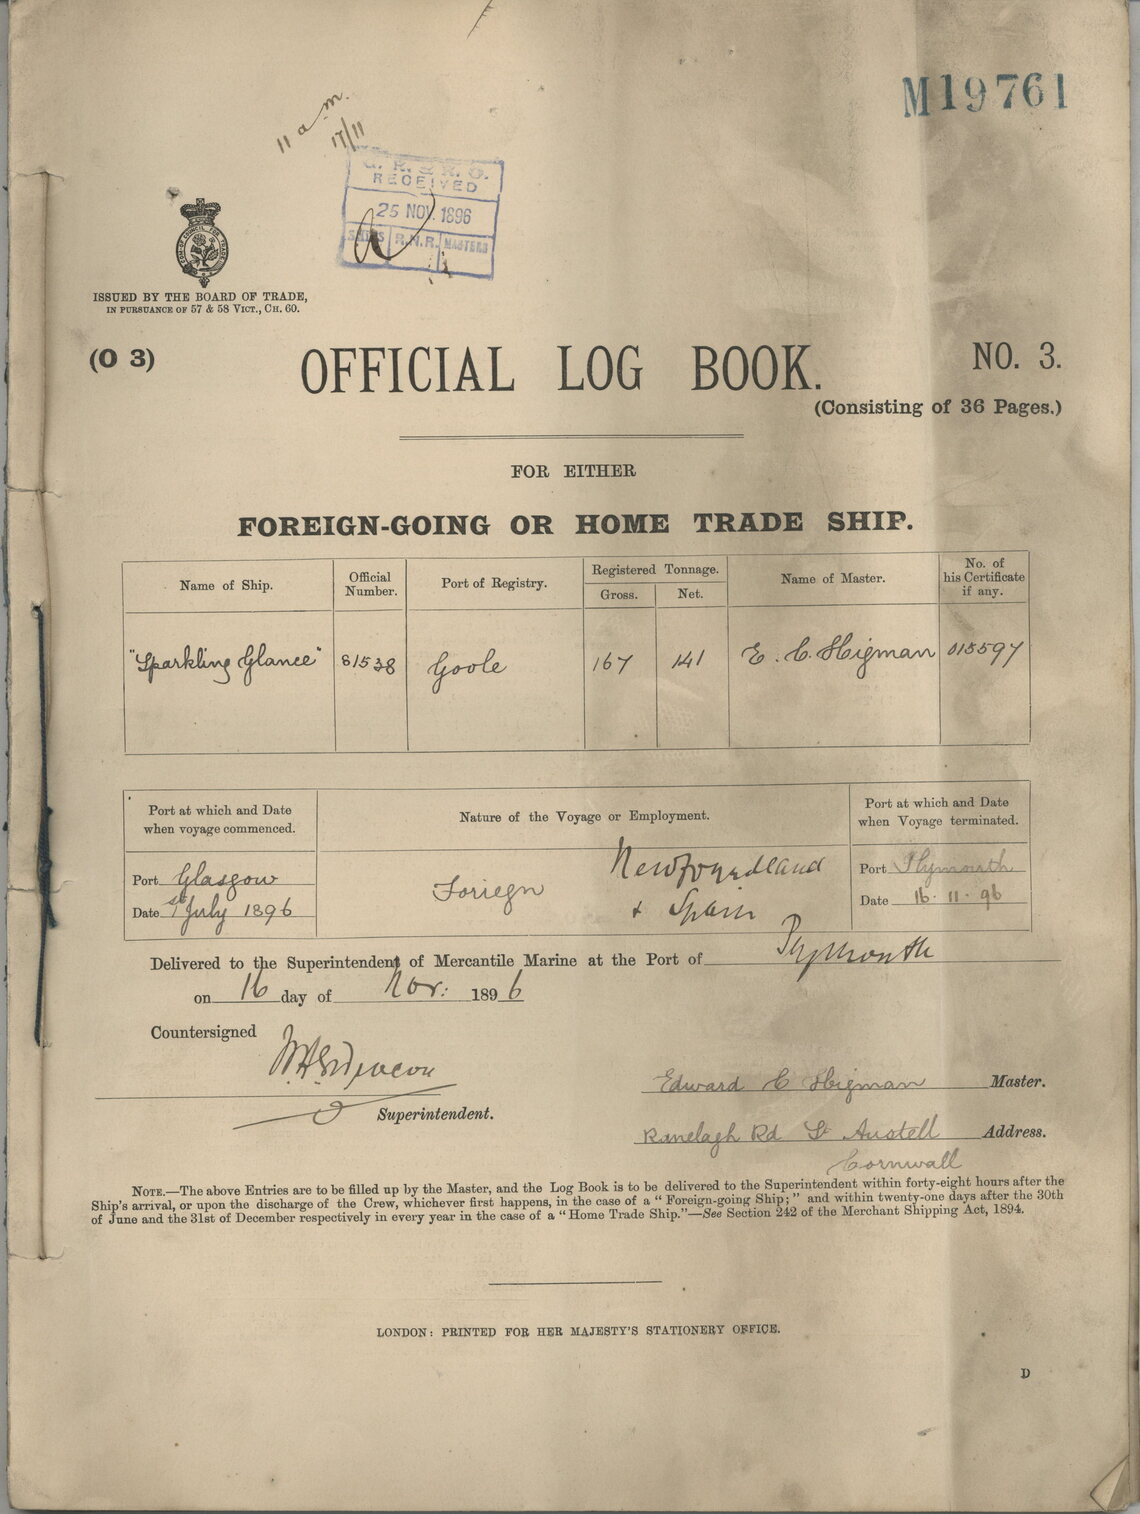 M19761
11 a.m.
17/11
G. R. S & R. O.
RECEIVED
25 NOV. 1896
SHIPS R.N.R. MASTERS
ISSUED BY THE BOARD OF TRADE,
IN PURSUANCE OF 57 & 58 VICT., CH. 60.
(O 3)
OFFICIAL LOG BOOK.
NO. 3.
(Consisting of 36 Pages.)
FOR EITHER
FOREIGN-GOING OR HOME TRADE SHIP.
Name of Ship. Official Number. Port of Registry. Registered Tonnage. Gross. Net. Name of Master. No. of his Certificate if any.
"Sparkling Glance" 81538 Goole 167 141 E. C. Higman 015597
Port at which and Date when voyage commenced.
Nature of the Voyage or Employment.
Port at which and Date when Voyage terminated.
Port Glasgow
Date 1st July 1896
Foriegn
Newfoundland
+ Spain
Port Plymouth
Date 16.11.96
Delivered to the Superintendent of Mercantile Marine at the Port of Plymouth
on 16 day of Nov: 1896
Countersigned
Superintendent.
Edward C Higman Master.
Ranelagh Rd St Austell Address.
Cornwall
NOTE.—The above Entries are to be filled up by the Master, and the Log Book is to be delivered to the Superintendent within forty-eight hours after the
Ship's arrival, or upon the discharge of the Crew, whichever first happens, in the case of a "Foreign-going Ship;" and within twenty-one days after the 30th
of June and the 31st of December respectively in every year in the case of a "Home Trade Ship."—See Section 242 of the Merchant Shipping Act, 1894.
LONDON: PRINTED FOR HER MAJESTY'S STATIONERY OFFICE.
D